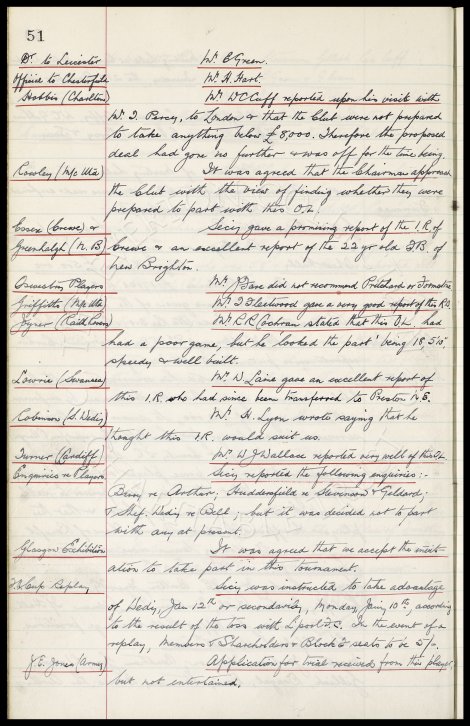 51
Dr. to Leicester Mr. C. Green.
Offieid to Chesterfield Mr. H. Hart.
Hobbis (Charlton) Mr. W C Cuff reported upon his visit with
Mr. T. Percy, to London & that the Club were not prepared
to take anything below £8,000. Therefore the proposed
deal had gone no further & was off for the time being.
Rowley (M/c Utd) It was agreed that the Chairman approach
the Club with the view of finding whether they were
prepared to part with this O.L.
Essex (Crewe) & Secy gave a promising report of the I.R. of
Greenhalgh (N. B) Crewe & an excellent report of the 22 yr old F.B. of
New Brighton.
Oswestry Players Mr. J Base did not recommend Pritchard or
Griffiths (M/c Utd) Mr. T Fleetwood gave a very good report of this R.B.
Joyner (Raith Rovers) Mr. R R Cochran stated that this O.L. had
had a poor game, but he looked the part being 18, 5'10",
speedy & well built.
Lowrie (Swansea) Mr. W Laine gave an excellent report of
this I.R. who had since been transferred to Preston N.E.
Robinson (S. Wedy) Mr. H. Lyon wrote saying that he
thought this I.R. would suit us.
Turner (Cardiff) Mr. W J Wallace reported very well of this
Enquiries re Players. Secy reported the following enquiries:-
Bury re Arthur; Huddersfield re Stevenson & Geldard;
& Shef. Wedy re Bell; but it was decided not to part
with any at present.
Glasgow Exhibition It was agreed that we accept the invit-
ation to take part in this tournament.
F.A. Cup Replay Secy was instructed to take advantage
of Wedy, Jan 12th or secondarily, Monday, Jany 10th, according
to the result of the toss with L'pool F.C. In the event of a
replay, Members & Shareholders & Block E seats to be 5/-.
J. E. Jones (Army) Application for trial received from this player,
but not entertained.